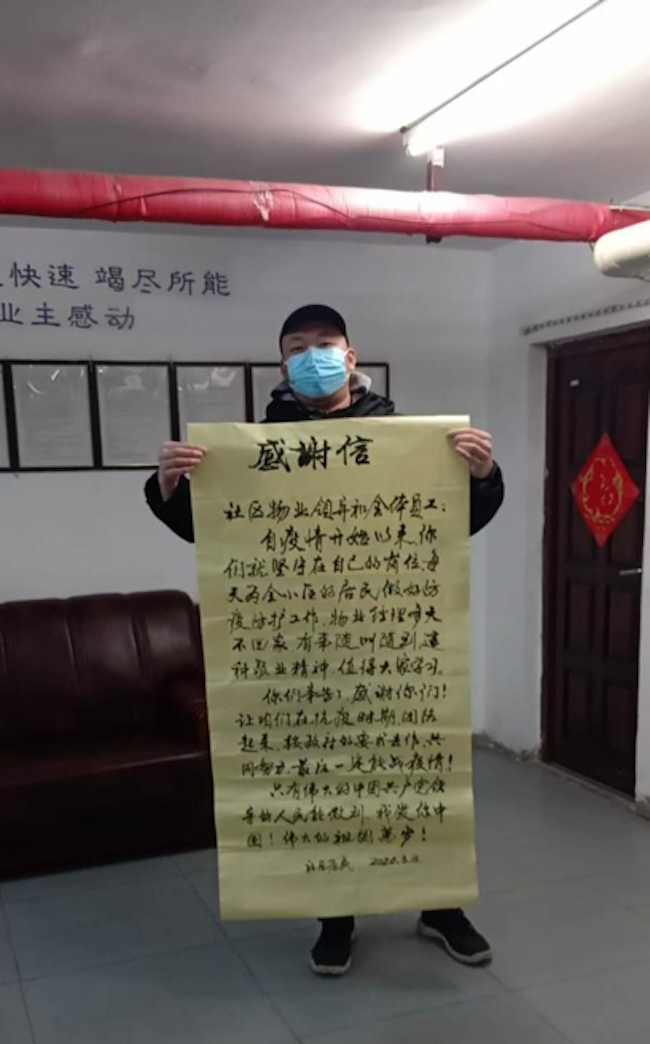 快速 竭尽所能
业主感动
感謝信
社区物业领导和全体员工:
自疫情开始以来,你
们就坚守在自己的岗位,每
天为全小区的居民做好防
疫防护工作,物业经理
不回家,有事随叫随到,这
种敬业精神,值得大家学习。
你们辛苦了,感谢你们!
让咱们在抗疫时期,团结
起来,按政府的要求去作,共
同努力,最后一定能战疫情!
只有伟大的中国共产党领
导的人民能做到,我爱你中
国!伟大的祖国萬岁!
社区居民 2020.
福